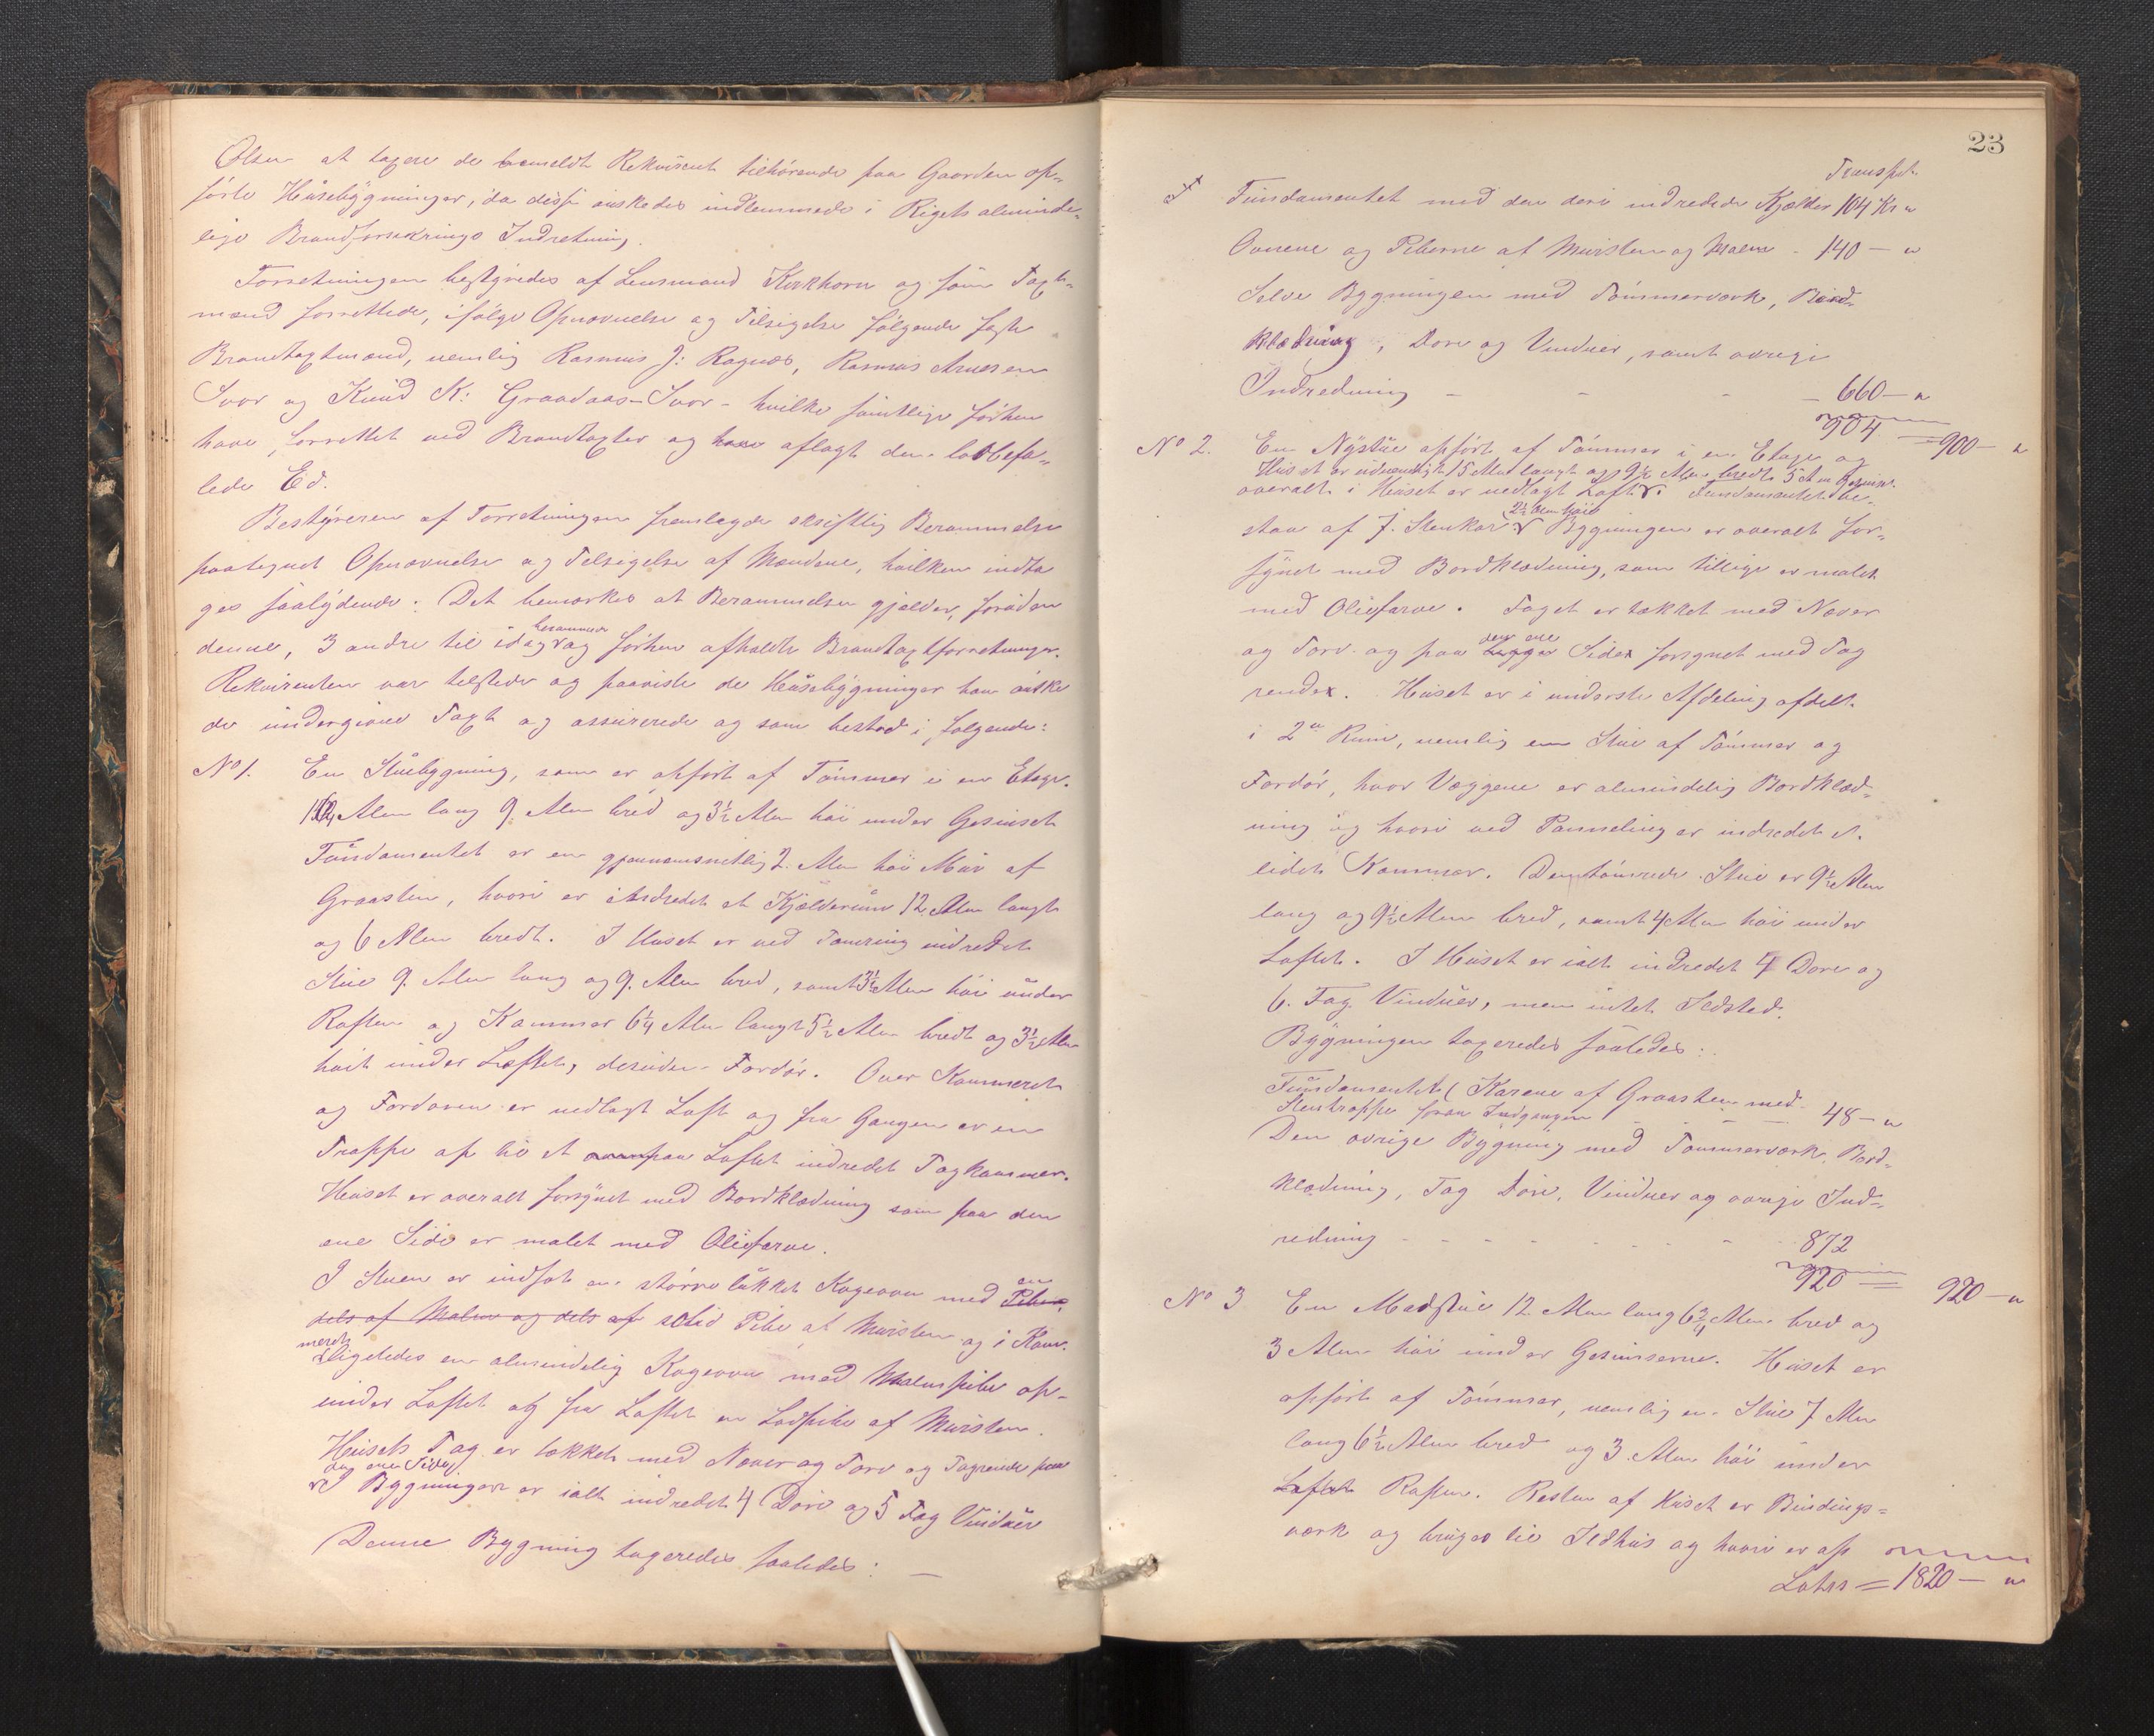 Olsen at taxere de bemeldte Rekvirent tilhørende paa Gaarden op-
førte Huusebygninger, da disse ønskedes indlemmede i Rigets alminde-
lige Brandforsikrings Indretning.
Forretningen bestyredes af Lensmand Kirkhorn og som Taxt-
mænd forrettede, ifølge Opnævnelse og Tilsigelse følgende faste
Brandtaxtmænd, nemlig Rasmus J: Ragnæs, Rasmus Arnesen
Svor og Knud K: Graadaas-Svor - hvilke samtlige forhen
have forrettet ved Brandtaxter og have aflagt den lovbefa-
lede Ed.
Bestyreren af Forretningen fremlagde skriftlig Berammelse
paategnet Opnævnelse og Tilsigelse af Mændene, hvilken indta
ges saalydende: Det bemærkes at Berammelsen gjælder, foruden
berammede
denne, 3 andre til idag og forhen afholdte Brandtaxtforretninger.
Rekvirenten var tilstede og paaviste de Huusebygninger han ønske
de undergivne Taxt og assurerede og som bestod i følgende:
No 1. En Stuebygning, som er opført af Tømmer i en Etage.
Alen lang 9 Alen bred og 3½ Alen høi under Gesimset
Fundamentet er en gjennemsnitlig 2 Alen høi Muur af
Graasten, hvori er indredet et Kjælderum 12 Alen langt
og 6 Alen bredt. I Huset er ved Tømring indredet
Stue 9 Alen lang og 9 Alen bred, samt 3½ Alen høi under
Raften og Kammer 6¼ Alen langt 5½ Alen bredt og 3½ Alen
høit under Loftet, desuden Fordør. Over Kammeret
og Fordøren er nedlagt Loft og fra Gangen er en
Trappe op til et paa Loftet indredet Tagkammer.
Huset er overalt forsynet med Bordklædning som paa den
ene Side er malet med Oliefarve.
I Stuen er indsat en større lukket Kogeovn med en Piber
dels af Malm og dels af solid Pibe af Mursten og i Kam-
meret ligeledes en almindelig Kogeovn med Malmpibe op-
under Loftet og fra Loftet en Lodpibe af Mursten.
Husets Tag er tækket med Næver og Torv og Tagrende paa
den ene Side
I Bygningen er ialt indredet 4 Døre og 5 Fag Vinduer
Denne Bygning taxeredes saaledes: —
23
Transpt.
Fundamentet med den deri indredede Kjælder 104 Kr "
Ovnene og Piberne af Mursten og Malm - 140 — "
Selve Bygningen med Tømmerværk, Bord-
klædning, Dore og Vinduer, samt øvrige
Indredning - - - - 660 — "
904 = 900 — "
No 2. En Nystue opført af Tømmer i en Etage og
Huset er udvendigt 15 Alen langt og 9½ Alen bredt 5 Alen Gesims.
overalt i Huset er nedlagt Loft. Fundamentet be-
2½ Alen høie
staa af 7. Stenkar. Bygningen er overalt for-
synet med Bordklædning, som tillige er malet
med Oliefarve. Taget er tækket med Næver
den ene
og Torv og paa begge Sider forsynet med Tag
render. Huset er i underste Afdeling afdelt
i 2de Rum, nemlig en Stue af Tømmer og
Fordør, hvor Væggene er almindelig Bordklæd-
ning og hvori ved Panneling er indredet et
lidet Kammer. Den tømrede Stue er 9½ Alen
lang og 9½ Alen bred, samt 4 Alen høi under
Loftet. I Huset er ialt indredet 4 Dore og
6. Fag Vinduer, men intet Ildsted.
Bygningen taxeredes saaledes:
Fundamentet (Karene af Graasten med
Stentrappe foran Indgangen - - - 48 — "
Den øvrige Bygning med Tømmerværk, Bord-
klædning, Tag Døre, Vinduer og øvrige Ind-
redning - - - - - - - 872
920 = 920 — "
No 3 En Madstue 12 Alen lang 6¾ Alen bred og
3 Alen høi under Gesimserne. Huset er
opført af Tømmer, nemlig en Stue 7 Alen
lang 6½ Alen bred og 3 Alen høi under
Loftet Raften. Resten af Huset er Bindings-
værk og bruges til Ildhus og hvori er op
Latus = 1820 — "